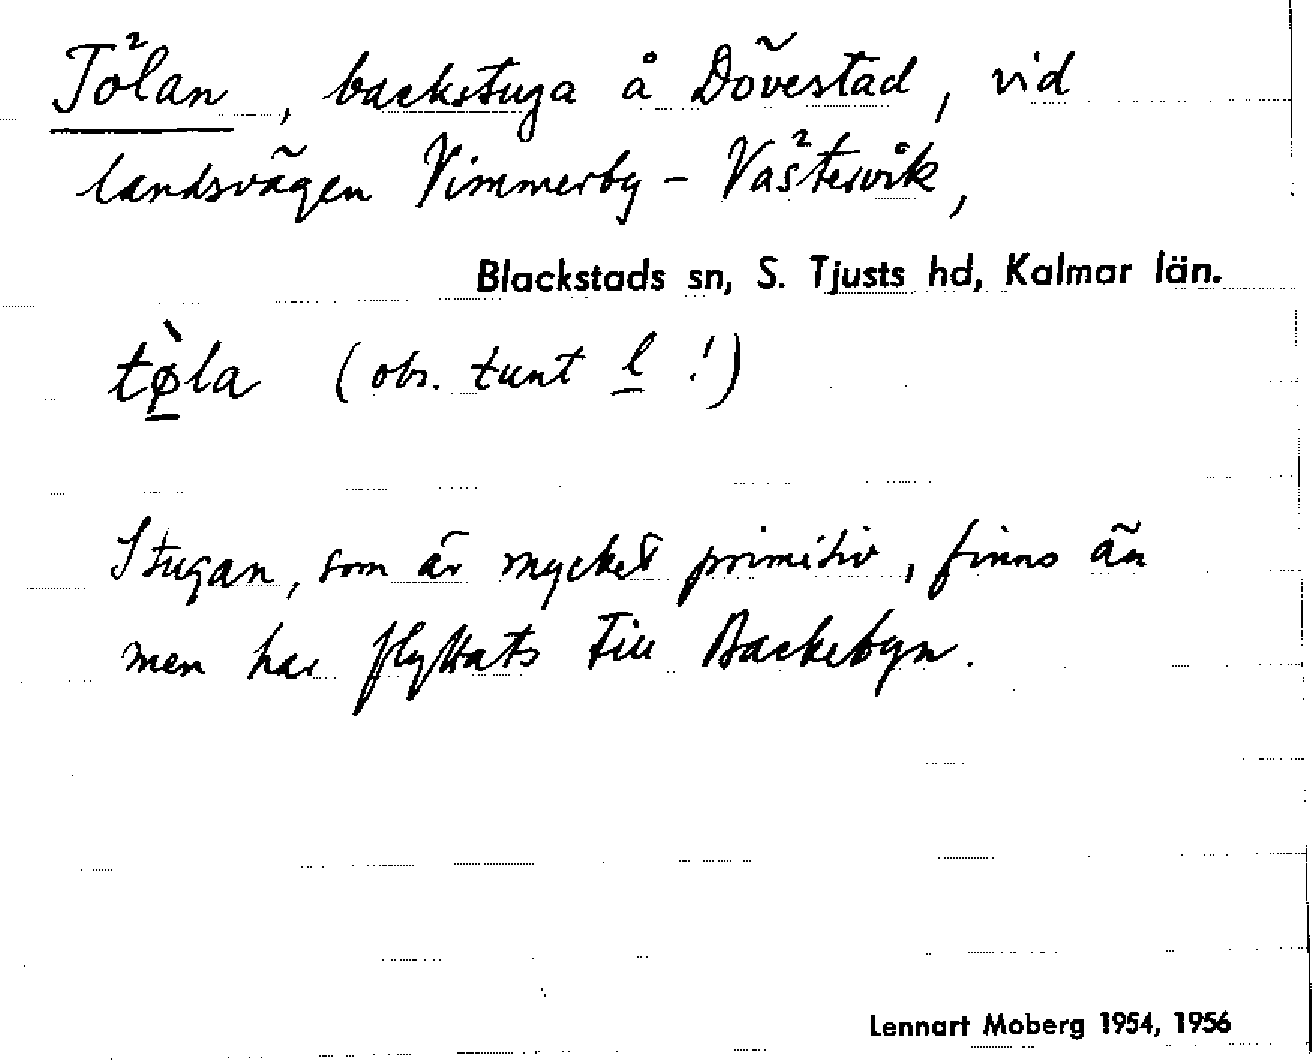 Tölan, backstuga å Dövestad, vid
landsvägen Vimmerby - Västervik,
Blackstads sn, S. Tjusts hd, Kalmar län.
tø̀la (obs. tunt l !)
Stugan, som är mycket primitiv, finns än
men har flyttats till Backebyn.
Lennart Moberg 1954, 1956